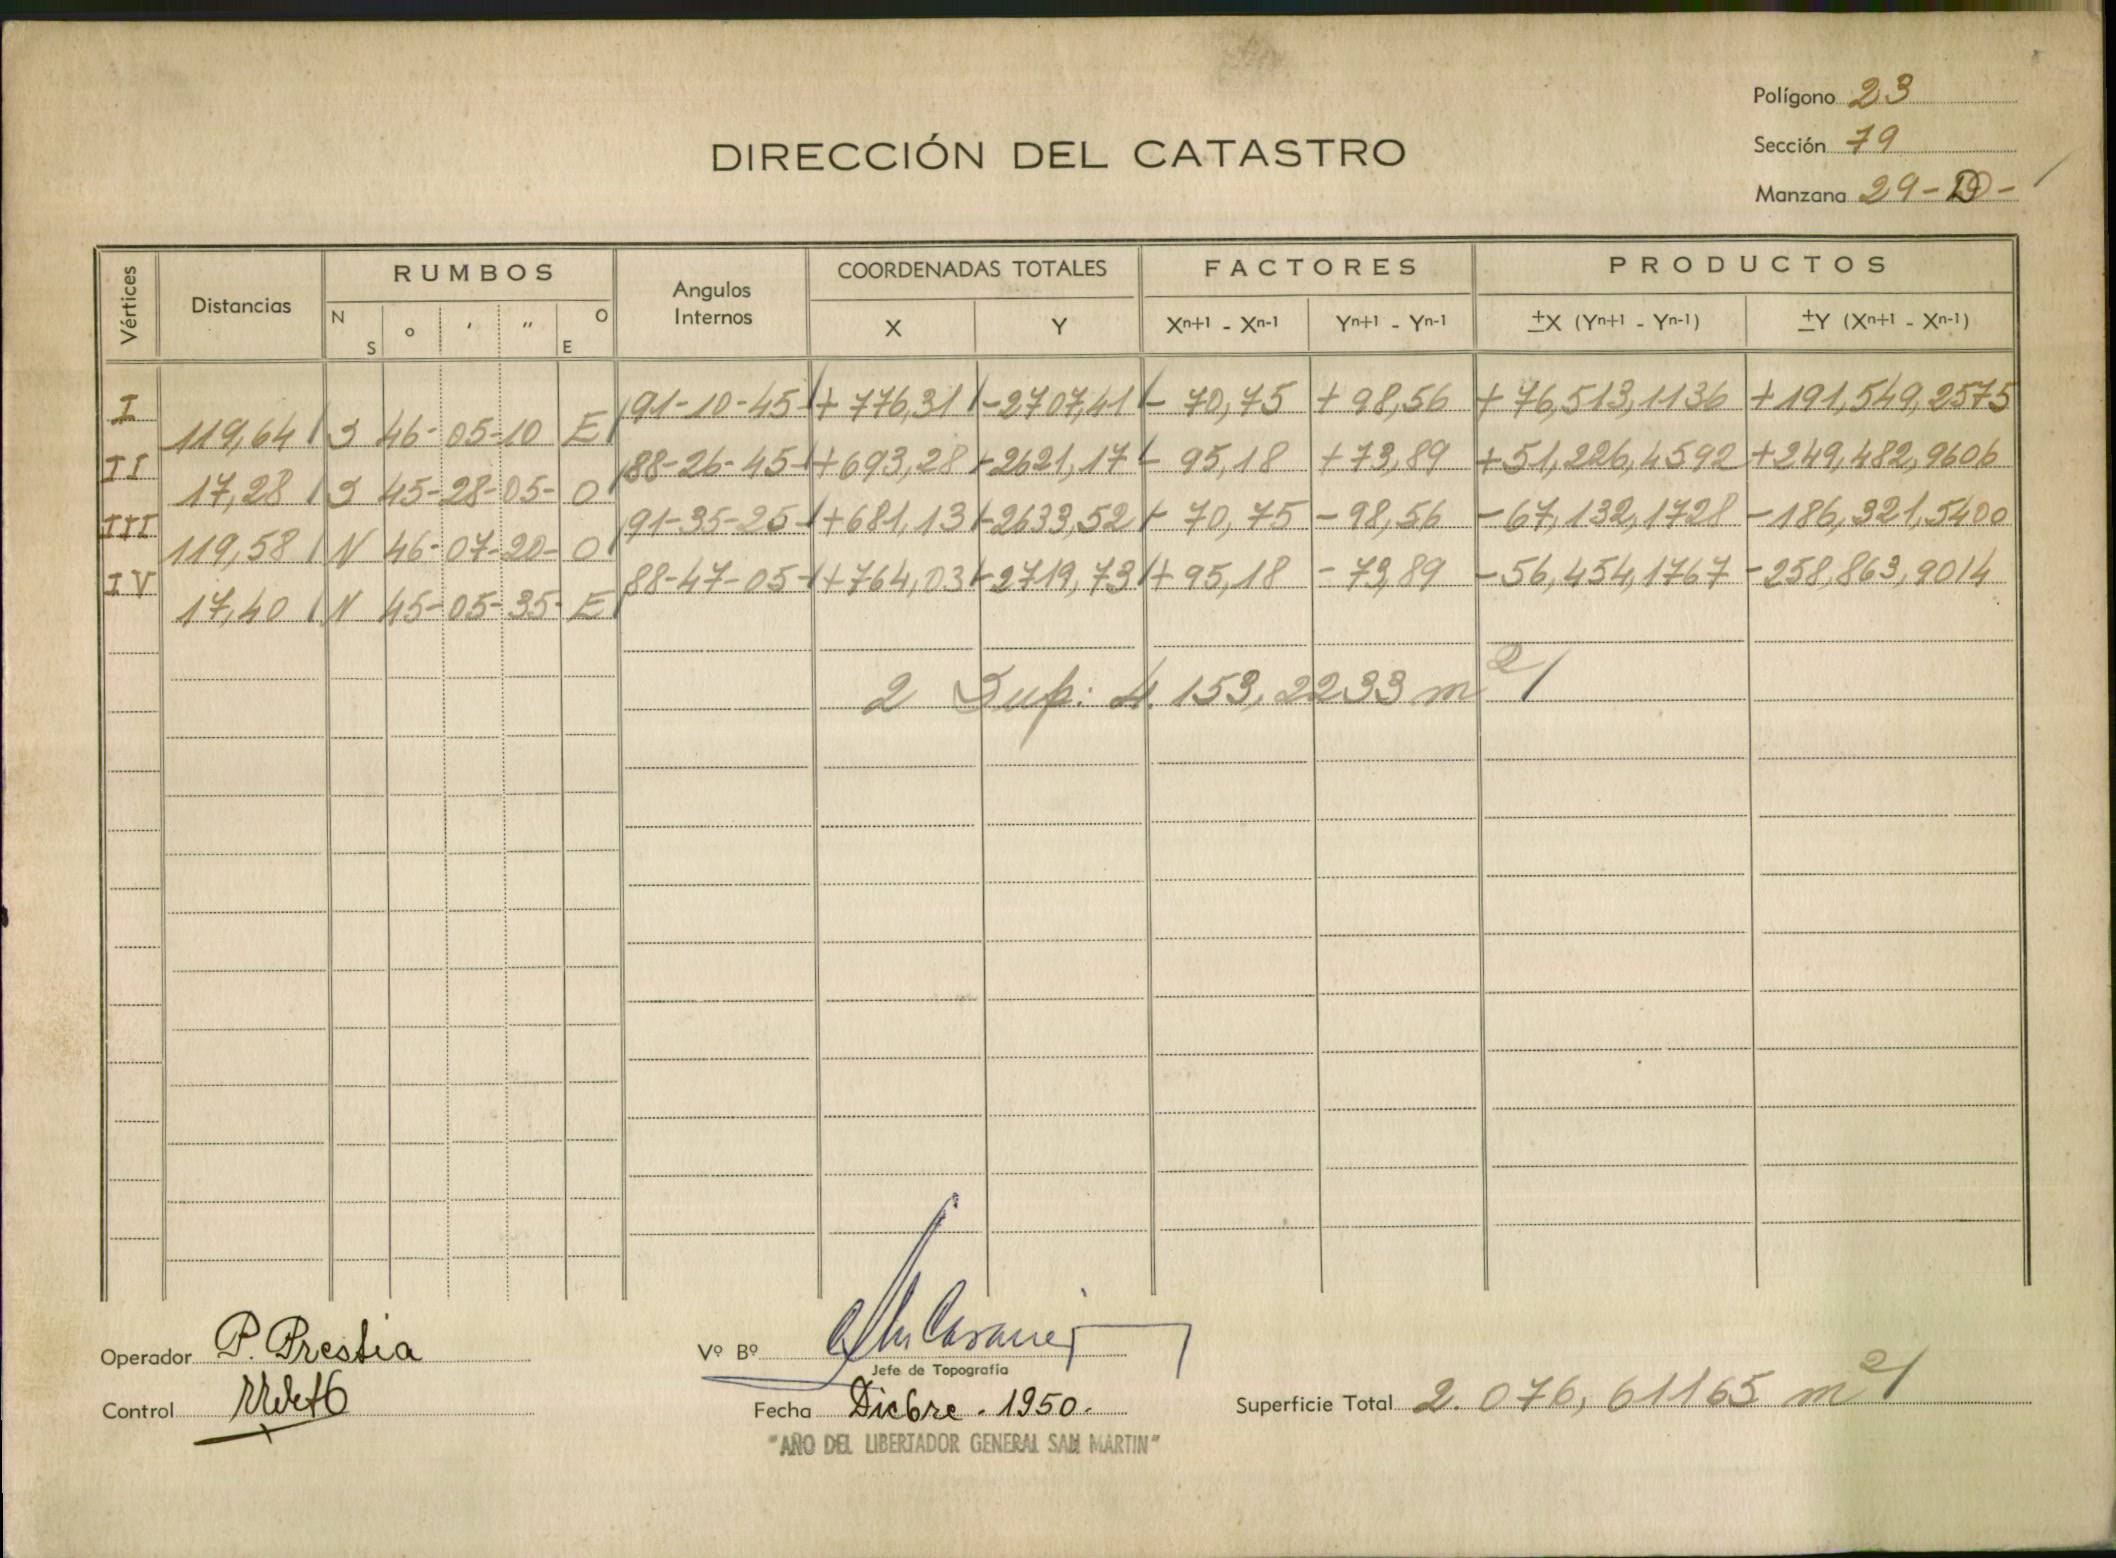 Polígono 23
Sección 79
Manzana 29-D-
DIRECCIÓN DEL CATASTRO
Vértices Distancias RUMBOS Angulos Internos COORDENADAS TOTALES FACTORES PRODUCTOS
N S ° ' " O E X Y Xn+1 - Xn-1 Yn+1 - Yn-1 ±X (Yn+1 - Yn-1) ±Y (Xn+1 - Xn-1)
I 91-10-45 + 776,31 -2707,41 - 70,75 + 98,56 + 76,513,1136 + 191,549,2575
119,64 S 46- 05- 10 E
II 88-26-45 +693,28 -2621,17 - 95,18 + 73,89 +51,226,4592 +249,482,9606
17,28 S 45- 28- 05- O
III 91-35-25 +681,13 -2633,52 + 70,75 - 98,56 -67,132,1728 -186,321,5400
119,58 N 46- 07- 20- O
IV 88-47-05 +764,03 -2719,73 + 95,18 - 73,89 -56,454,1767 -258,863,9014
17,40 N 45- 05- 35- E
2 Sup: 4.153,2233 m2
Operador P. Prestia
Vº Bº
Jefe de Topografía
Control
Fecha Dicbre. 1950.
Superficie Total 2.076,61165 m2
"AÑO DEL LIBERTADOR GENERAL SAN MARTIN"